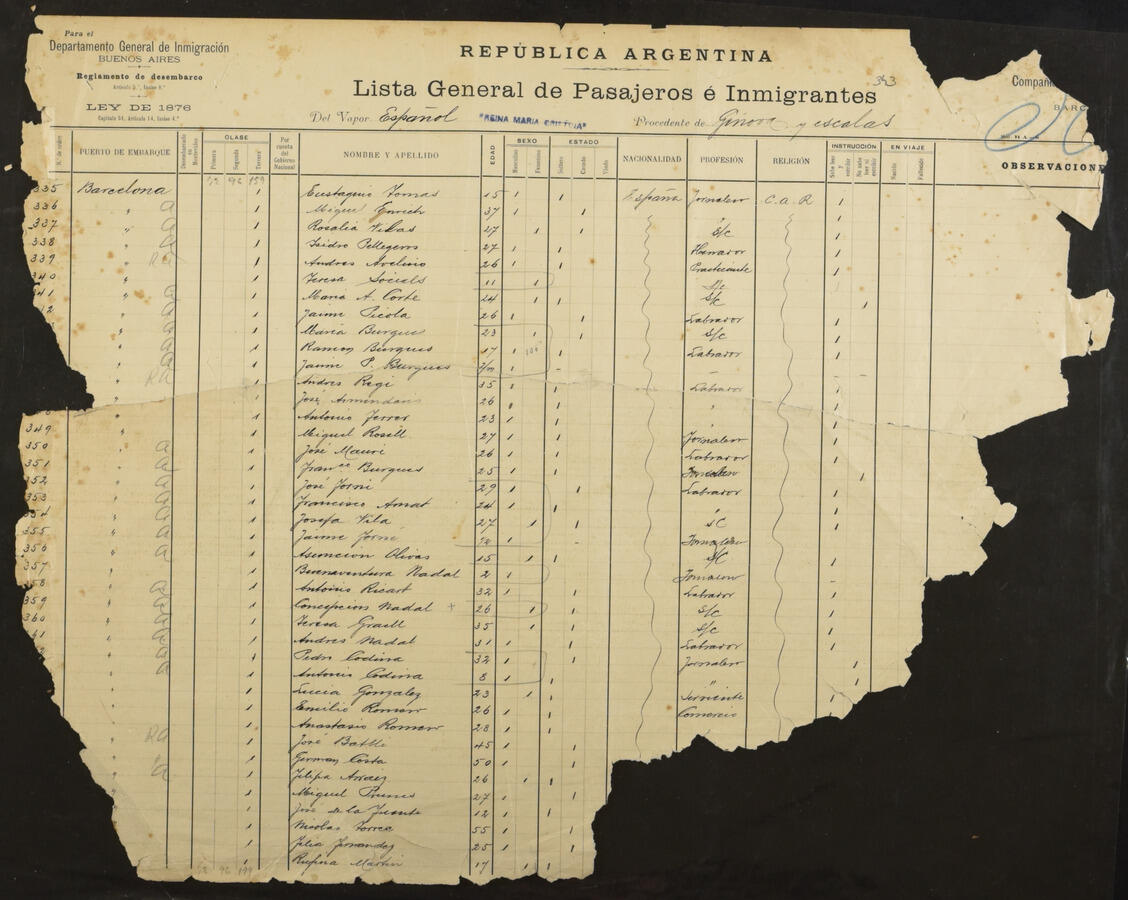 Para el
Departamento General de Inmigración
BUENOS AIRES
Reglamento de desembarco
LEY DE 1876
Capítulo 54, Artículo 14, Inciso 4.°
REPÚBLICA ARGENTINA
343
Lista General de Pasajeros é Inmigrantes
Del Vapor Español "REINA MARIA CRISTINA" Procedente de Génova y escalas
Compañ
BARC
N.° de orden PUERTO DE EMBARQUE Desembarcado en Montevideo CLASE Primera Segunda Tercera Por cuenta del Gobierno Nacional NOMBRE Y APELLIDO EDAD SEXO Masculino Femenino ESTADO Soltero Casado Viudo NACIONALIDAD PROFESIÓN RELIGIÓN INSTRUCCIÓN Sabe leer y escribir No sabe leer ni escribir EN VIAJE Nacido Fallecido OBSERVACIONE
12 96 159
335 Barcelona 1 Eustaquio Tomas 15 1 1 España Jornalero C. A. R 1
336 " 1 Miguel 37 1 1 1
337 " 1 Rosalia Vilas 27 1 1 S/C 1
338 " 1 Isidro Pellegero 27 1 1 Herrador 1
339 " 1 Andres Avelino 26 1 1 Practicante 1
340 " 1 Teresa Socials 11 1 S/c 1
41 " 1 Maria A. Corte 24 1 1 S/C 1
2 " 1 Jaime Picola 26 1 1 Labrador 1
" 1 Maria Burgues 23 1 1 S/C 1
" 1 Ramon Burgues 17 1 1 Labrador 1
" 1 Jaime P. Burgues 1 -
" 1 Andres Regi 35 1 1 Labrador 1
" 1 José 26 1 1 " 1
349 " 1 Antonio Ferrer 23 1 1 1
350 " 1 Miguel Rosell 27 1 1 Jornalero 1
351 " 1 José Mauri 26 1 1 Labrador 1
352 " 1 Franco Burgues 25 1 1 Jornalero 1
353 " 1 José Jorni 29 1 1 Labrador 1
354 " 1 Francisco Amat 24 1 1 " 1
355 " 1 Josefa Vila 27 1 1 S/C 1
356 " 1 Jaime Jorni 1 - Jornalero
357 " 1 Asuncion Olivas 15 1 1 S/C 1
358 " 1 Buenaventura Nadal 2 1 Jornalero -
359 " 1 Antonio Ricart 32 1 1 Labrador 1
360 " 1 Concepcion Nadal + 26 1 1 S/C 1
61 " 1 Teresa Graell 35 1 1 S/c 1
" 1 Andres Nadal 31 1 1 Labrador 1
" 1 Pedro Codina 32 1 1 Jornalero 1
" 1 Antonio Codina 8 1 1 " 1
" 1 Lucia Gonzalez 23 1 1 Sirviente 1
" 1 Emilio Romero 26 1 1 Comercio 1
" 1 Anastasio Romero 28 1 1
" 1 José Batlle 45 1 1
" 1 German Costa 50 1 1
" 1 Felipa Arraez 26 1 1
" 1 Miguel Prunes 27 1 1
" 1 José de la Fuente 12 1 1
" 1 Nicolas Correa 55 1 1
" 1 Julia Fernandez 25 1 1
1 Rufina Martin 17 1 1
12 96 199